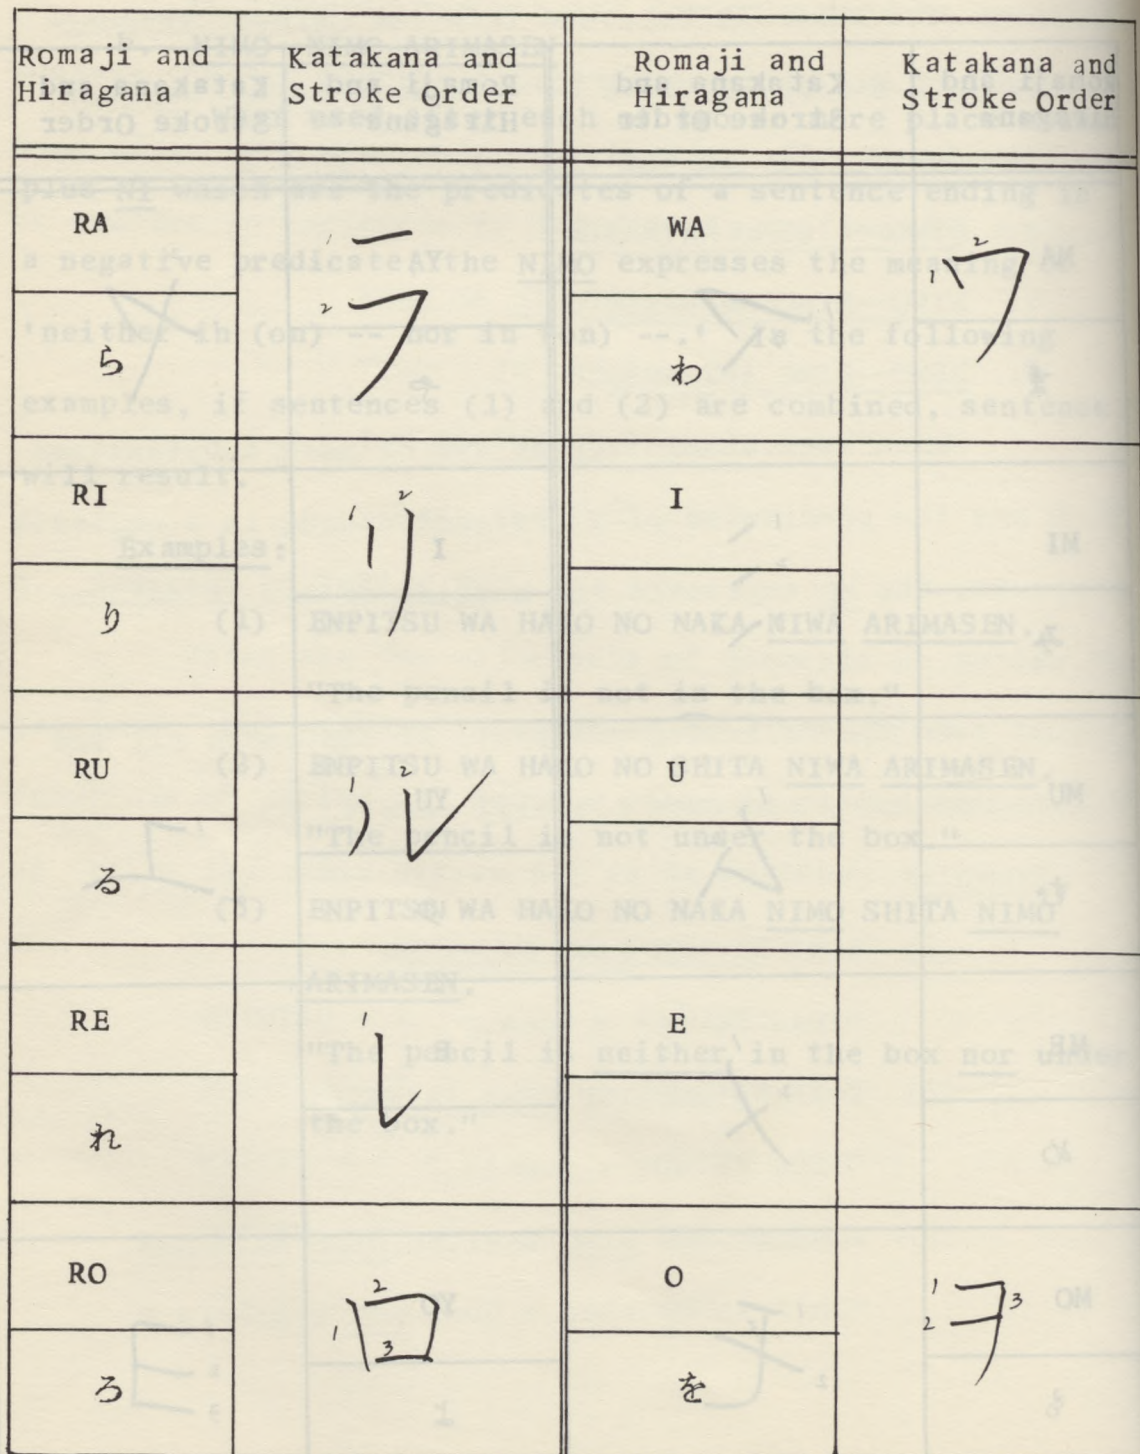 Romaji and Hiragana
Katakana and Stroke Order
Romaji and Hiragana
Katakana and Stroke Order
RA
ら
1 2
ラ
WA
わ
1 2
ワ
RI
り
1 2
リ
I
RU
る
1 2
ル
U
RE
れ
1
レ
E
RO
ろ
1 2 3
ロ
O
を
1 2 3
ヲ